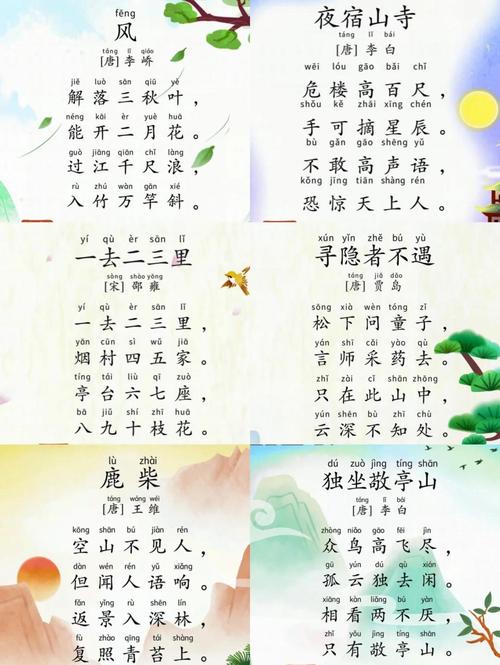 fēng
风
táng lǐ qiáo
[唐] 李峤
jiě luò sān qiū yè
解落三秋叶，
néng kāi èr yuè huā
能开二月花。
guò jiāng qiān chǐ làng
过江千尺浪，
rù zhú wàn gān xié
入竹万竿斜。
夜宿山寺
táng lǐ bái
[唐] 李白
wēi lóu gāo bǎi chǐ
危楼高百尺，
shǒu kě zhāi xīng chén
手可摘星辰。
bù gǎn gāo shēng yǔ
不敢高声语，
kǒng jīng tiān shàng rén
恐惊天上人。
yí qù èr sān lǐ
一去二三里
sòng shào yōng
[宋] 邵雍
一去二三里，
yān cūn sì wǔ jiā
烟村四五家。
tíng tái liù qī zuò
亭台六七座，
bā jiǔ shí zhī huā
八九十枝花。
xún yǐn zhě bú yù
寻隐者不遇
táng jiǎ dǎo
[唐] 贾岛
sōng xià wèn tóng zǐ
松下问童子，
yán shī cǎi yào qù
言师采药去。
zhǐ zài cǐ shān zhōng
只在此山中，
yún shēn bù zhī chù
云深不知处。
lù zhài
鹿柴
táng wáng wéi
[唐] 王维
kōng shān bú jiàn rén
空山不见人，
dàn wén rén yǔ xiǎng
但闻人语响。
fǎn yǐng rù shēn lín
返景入深林，
fù zhào qīng tái shàng
复照青苔上。
dú zuò jìng tíng shān
独坐敬亭山
táng lǐ bái
[唐] 李白
zhòng niǎo gāo fēi jìn
众鸟高飞尽，
gū yún dú qù xián
孤云独去闲。
xiāng kàn liǎng bú yàn
相看两不厌，
zhǐ yǒu jìng tíng shān
只有敬亭山。